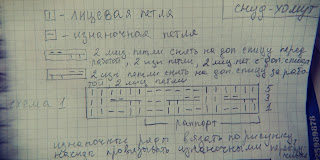 снуд-хомут
| - лицевая петля
— - изнаночная петля
2 лиц петли снять на доп спицу перед
работой, 2 изн петли, 2 лиц пет с доп. спицы
2 изн петли снять на доп спицу за рабо-
той, 2 лиц петли
схема 1
5
3
1
раппорт
изночные ряды вязать по рисунку,
провязывать изнаночными